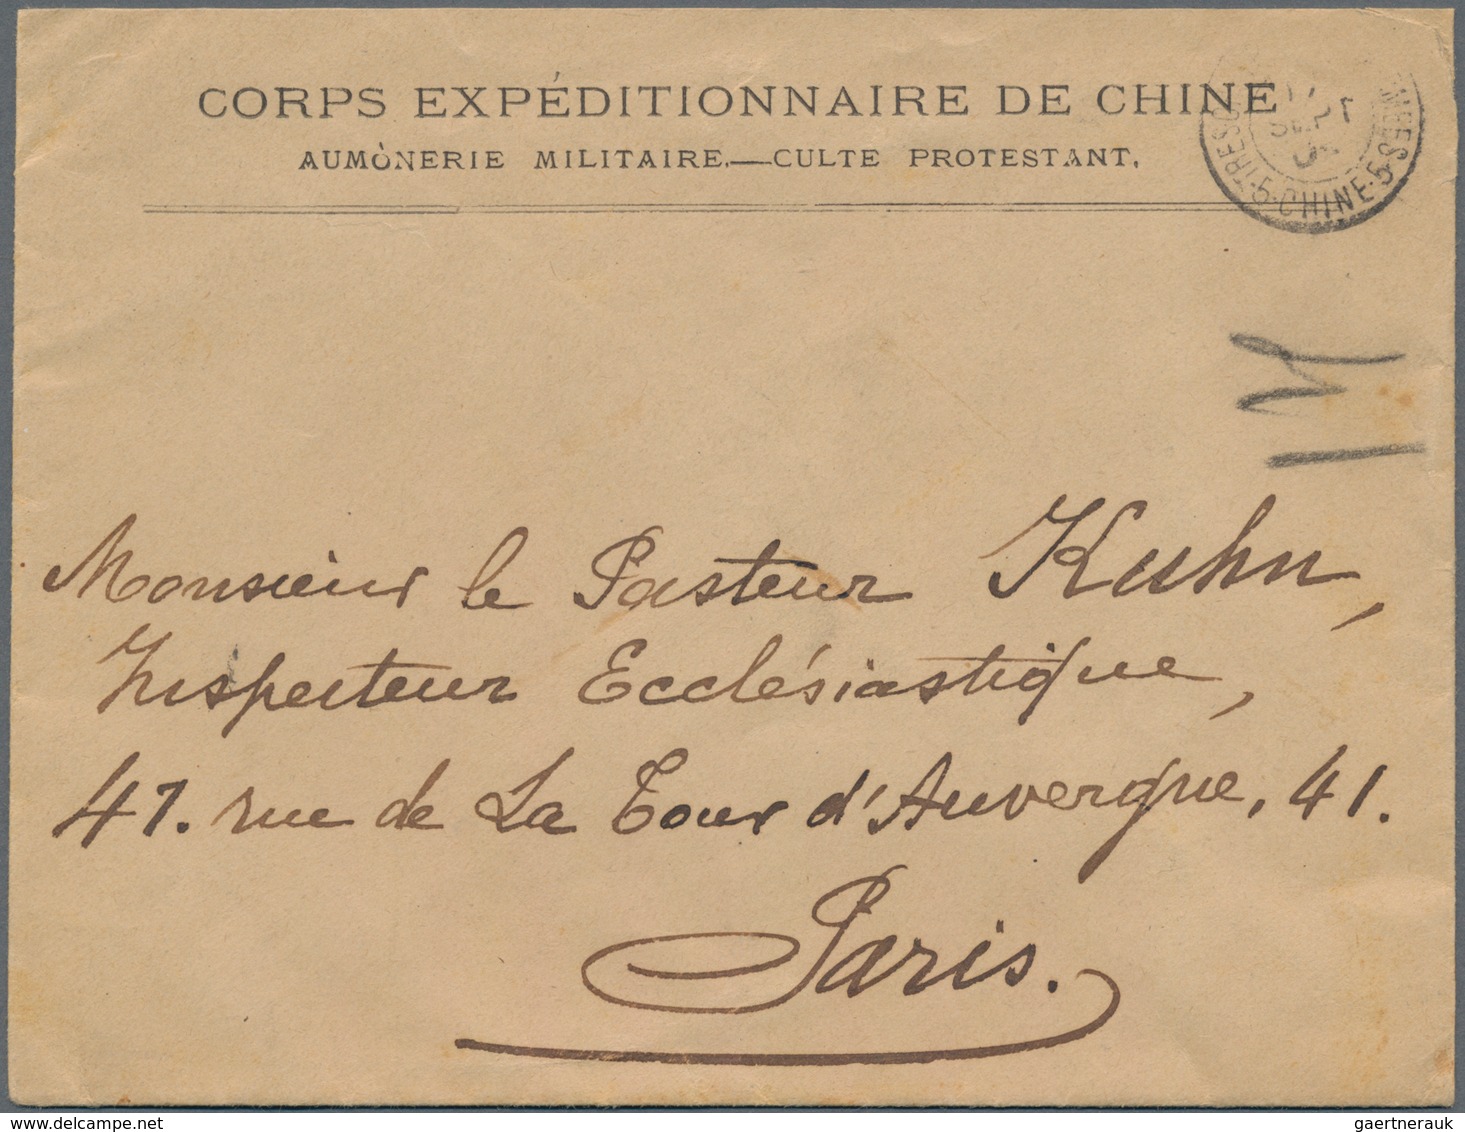 CORPS EXPÉDITIONNAIRE DE CHINE
AUMÒNERIE MILITAIRE.—CULTE PROTESTANT.
SEPT
5·CHINE·5
Monsieur le Pasteur Kuhn,
Inspecteur Ecclésiastique,
41. rue de La Tour d'Auvergne, 41.
Paris.
gaertnerauk @ delcampe.net